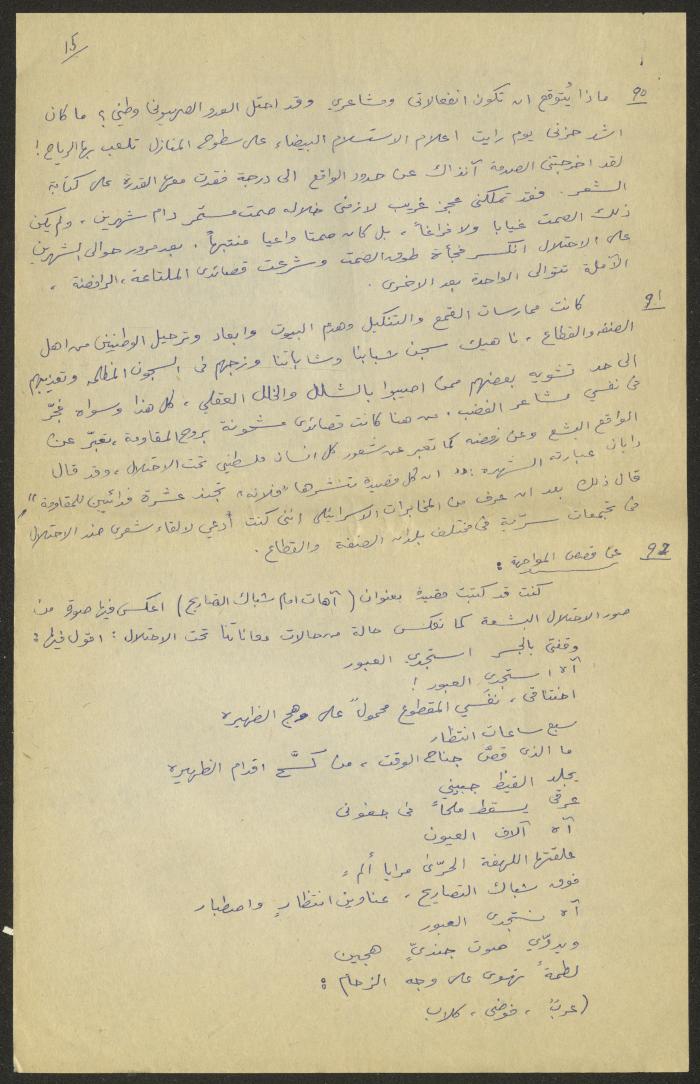 ١٥
٩٠ ماذا يُتوقع ان تكون انفعالاتي ومشاعري وقد احتل العدو الصهيوني وطني؟ ما كان
اشد حزني يوم رايت اعلام الاستسلام البيضاء على سطوح المنازل تلعب بها الرياح!
لقد اخرجتني الصدمة آنذاك عن حدود الواقع الى درجة فقدت معها القدرة على كتابة
الشعر. فقد تملكني عجز غريب لازمني خلاله صمت مستمر دام شهرين، ولم يكن
ذلك الصمت غيابا ولا فراغاً، بل كان صمتا واعيا منتبهاً. بعد مرور حوالي الشهرين
على الاحتلال انكسر فجأة طوق الصمت وشرعت قصائدي الملتاعة، الرافضة،
الآملة تتوالى الواحدة بعد الاخرى.
٩١ كانت ممارسات القمع والتنكيل وهدم البيوت وابعاد وترحيل الوطنيين من اهل
الضفة والقطاع، ناهيك سجن شبابنا وشاباتنا وزجهم في السجون المظلمة وتعذيبهم
الى حد تشويه بعضهم ممن اصيبوا بالشلل والخلل العقلي، كل هذا وسواه فجّر
في نفسي مشاعر الغضب. من هنا كانت قصائدي مشحونة بروح المقاومة، تعبّر عن
الواقع البشع وعن رفضه كما تعبر عن شعور كل انسان فلسطيني تحت الاحتلال، وقد قال
دايان عبارته الشهيرة: "ان كل قصيدة تنشرها "فلانة" تجند عشرة فدائيين للمقاومة"،
قال ذلك بعد ان عرف من المخابرات الاسرائيلي انني كنت أدعي لالقاء شعري ضد الاحتلال
في تجمعات سرّية في مختلف بلدان الضفة والقطاع.
٩٢ عن قصص المواجهة:
كنت قد كتبت قصيدة بعنوان (آهات امام شباك التصاريح) اعكس فيها صورة من
صور الاحتلال البشعة كما تعكس حالة من حالات معاناتنا تحت الاحتلال: اقول فيها:
وقفتي بالجسر استجدي العبور
آه استجدي العبور!
اختناقي، نفَسي المقطوع محمولٌ على وهج الظهيره
سبع ساعات انتظار
ما الذي قصّ جناح الوقت، من كسّح اقدام الظهيره
يجلد القيظ جبيني
عرقي يسقط ملحاً في جفوني
آه آلاف العيون
علقتها اللهفة الحرّى مرايا ألمٍ
فوق شباك التصاريح، عناوين انتظارٍ واصطبار
آه نستجدي العبور
ويدوّي صوت جنديٍّ هجين
لطمةً تهوي على وجه الزحام:
(عربٌ، فوضى، كلاب